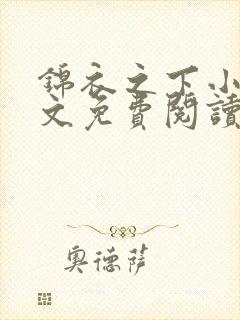 錦衣之下小
文免費閱讀
奧德薩